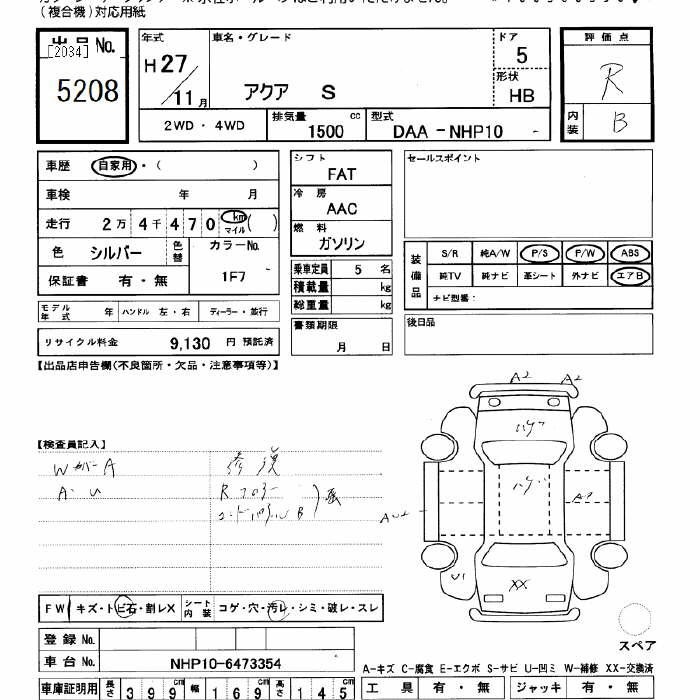 (複合機)対応用紙
出品No.
[2034]
5208
年式
H27/11月
車名・グレード
アクア S
ドア
5
形状
HB
評価点
R
内装
B
2WD・4WD
排気量
1500 cc
型式
DAA-NHP10 -
車歴 自家用・( )
車検 年 月
走行 2万4千470 km マイル ( )
色 シルバー 色替 カラーNo.
保証書 有・無 1F7
モデル年式 年 ハンドル 左・右 ディーラー・並行
リサイクル料金 9,130 円 預託済
シフト
FAT
冷房
AAC
燃料
ガソリン
乗車定員 5 名
積載量 kg
総重量 kg
書類期限
月 日
セールスポイント
装備品
S/R 純A/W P/S P/W ABS
純TV 純ナビ 革シート 外ナビ エアB
ナビ型番:
後日品
【出品店申告欄(不良箇所・欠品・注意事項等)】
【検査員記入】
WカバーA
A・U
修復
Rフロアー
エンドパネルB
A2 A2
ハゲ
ハゲ
U1
XX
スペア
FW キズ・トビ石・割レX シート内装 コゲ・穴・汚レ・シミ・破レ・スレ
登録No.
車台No. NHP10-6473354
車庫証明用 長さ 399cm 幅 169cm 高さ 145cm
A-キズ C-腐食 E-エクボ S-サビ U-凹ミ W-補修 XX-交換済
工具 有・無 ジャッキ 有・無